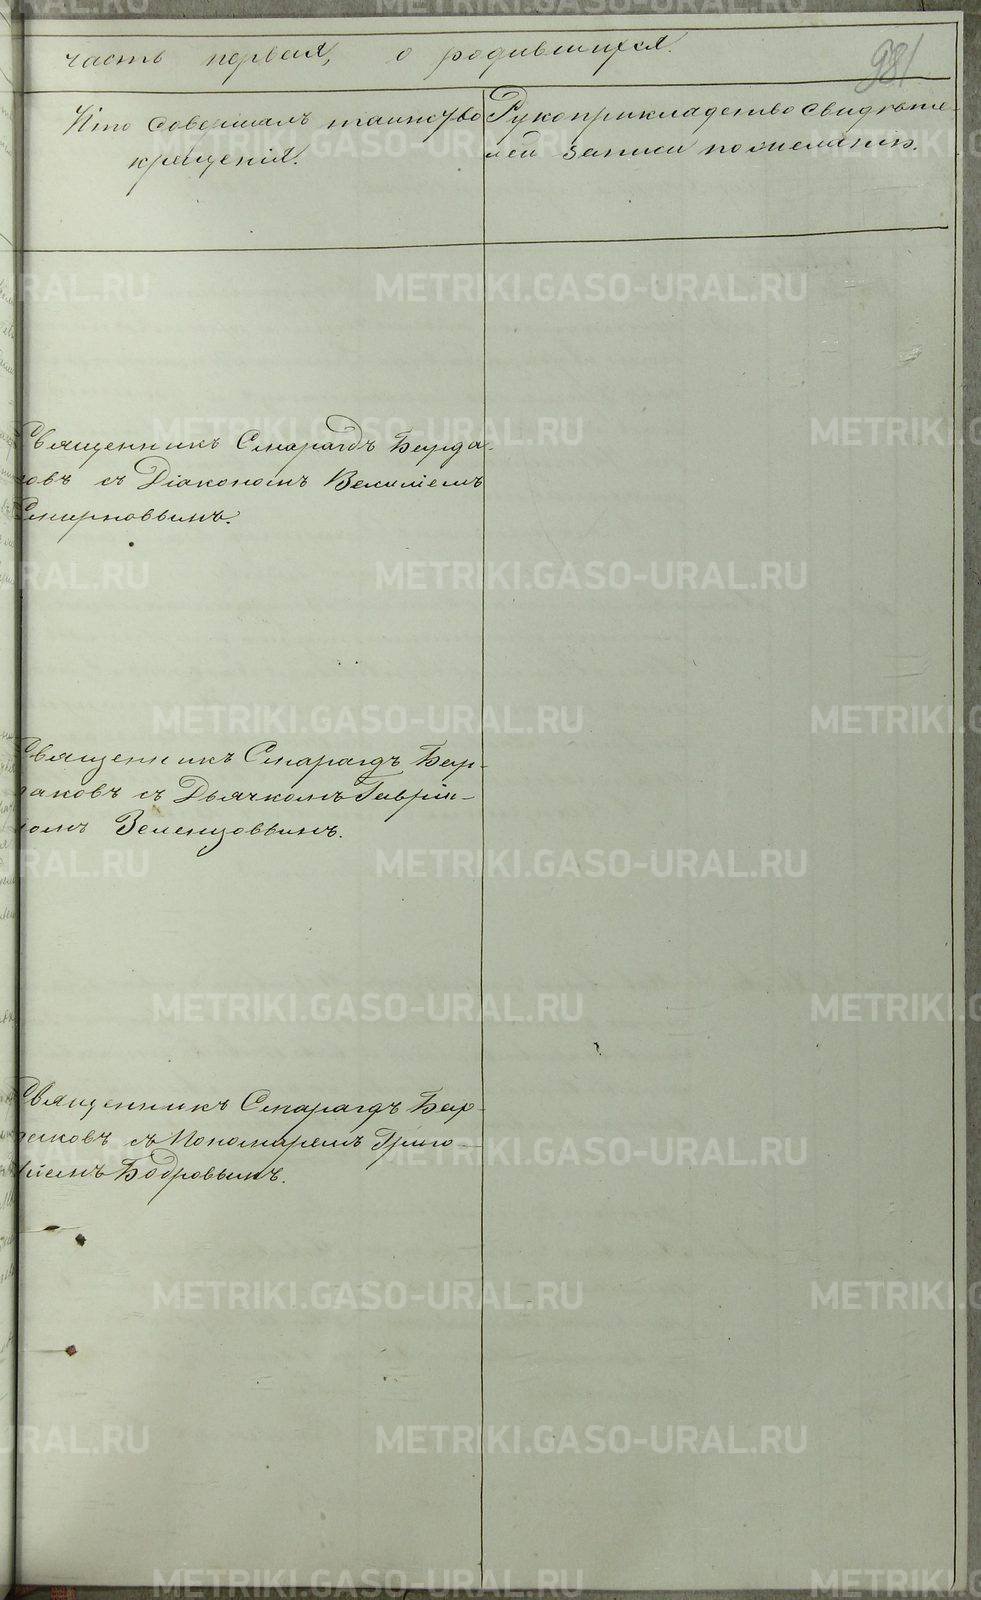 часть первая, о родившихся.
981
Кто совершалъ таинство
крещенія.
Рукоприкладство свидѣте-
лей записи по желанію.
Священникъ Смарагдъ Бирда-
ковъ съ Діакономъ Василіемъ
Смирновымъ.
Священникъ Смарагдъ Бир-
даковъ съ Дьячкомъ Гаврiи-
ломъ Земенцовымъ.
Священникъ Смарагдъ Бир-
даковъ съ Пономаремъ Григо-
ріемъ Бобровымъ.
METRIKI.GASO-URAL.RU